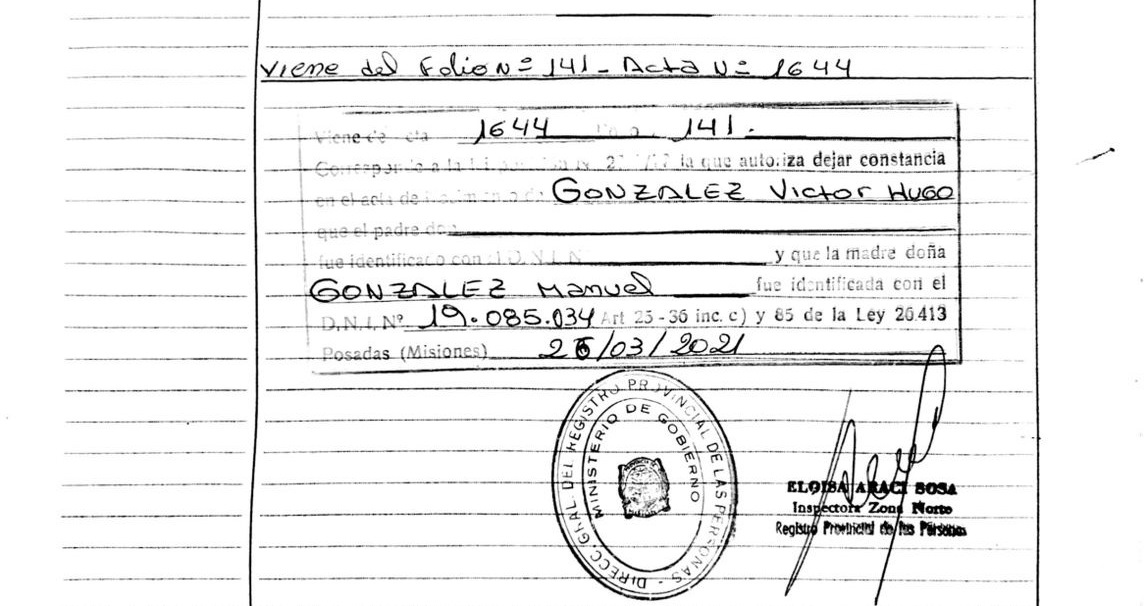 Viene del Folio Nº 141 - Acta Nº 1644
Viene de acta 1644 Folio 141.
Corresponde a la la que autoriza dejar constancia
en el acta de nacimiento de GONZALEZ Victor HUGO
que el padre de
fue identificado con el D.N.I. N y que la madre doña
GONZALEZ Manuel fue identificada con el
D.N.I. Nº 19.085.034 Art 25 - 36 inc. c) y 85 de la Ley 26.413
Posadas (Misiones) 26/03/2021
DIRECC. GRAL. DEL REGISTRO PROVINCIAL DE LAS PERSONAS
MINISTERIO DE GOBIERNO
ELOISA ARACI SOSA
Inspectora Zona Norte
Registro Provincial de las Personas